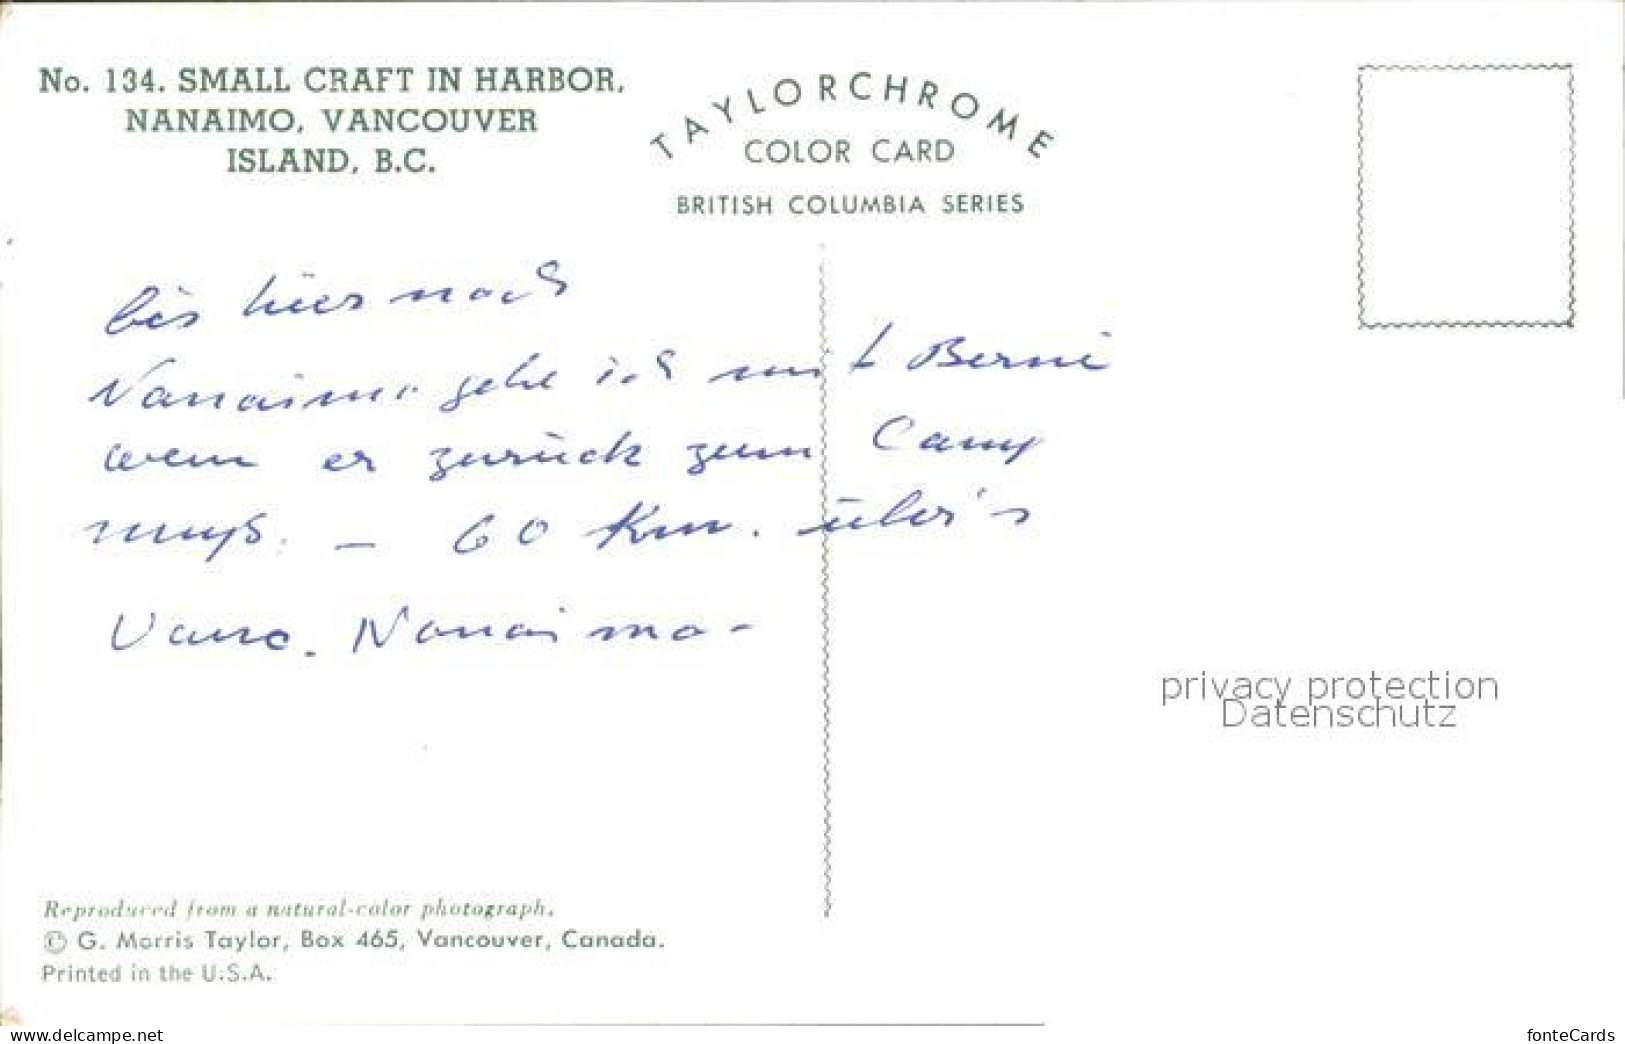 No. 134. SMALL CRAFT IN HARBOR,
NANAIMO, VANCOUVER
ISLAND, B.C.
TAYLORCHROME
COLOR CARD
BRITISH COLUMBIA SERIES
bis hier nach
Nanaimo gehe ich mit Berni
wenn er zurück zum Camp
muß. – 60 Km. über's
Vanc. Nanaimo –
privacy protection
Datenschutz
Reproduced from a natural-color photograph.
© G. Morris Taylor, Box 465, Vancouver, Canada.
Printed in the U.S.A.
www.delcampe.net
fonteCards